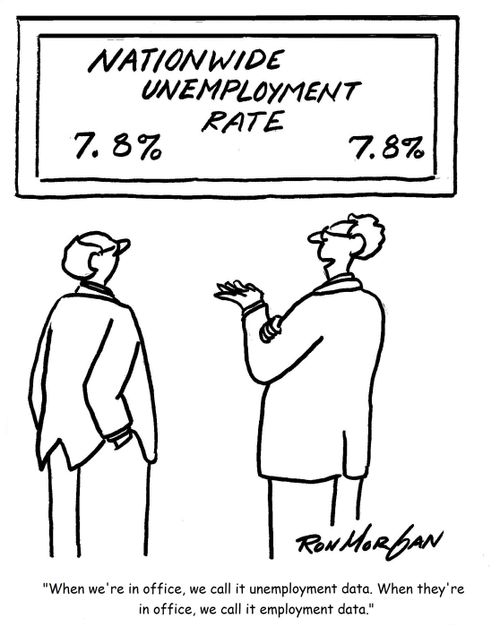 NATIONWIDE
UNEMPLOYMENT
RATE
7.8% 7.8%
RON MORGAN
"When we're in office, we call it unemployment data. When they're
in office, we call it employment data."